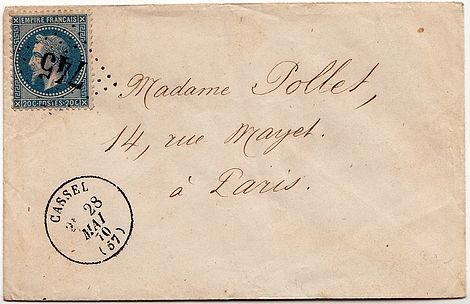 EMPIRE FRANÇAIS
745
20C-POSTES-20C
Madame Pollet,
14, rue Mayet.
à Paris.
CASSEL
2E 28
MAI
70
(57)